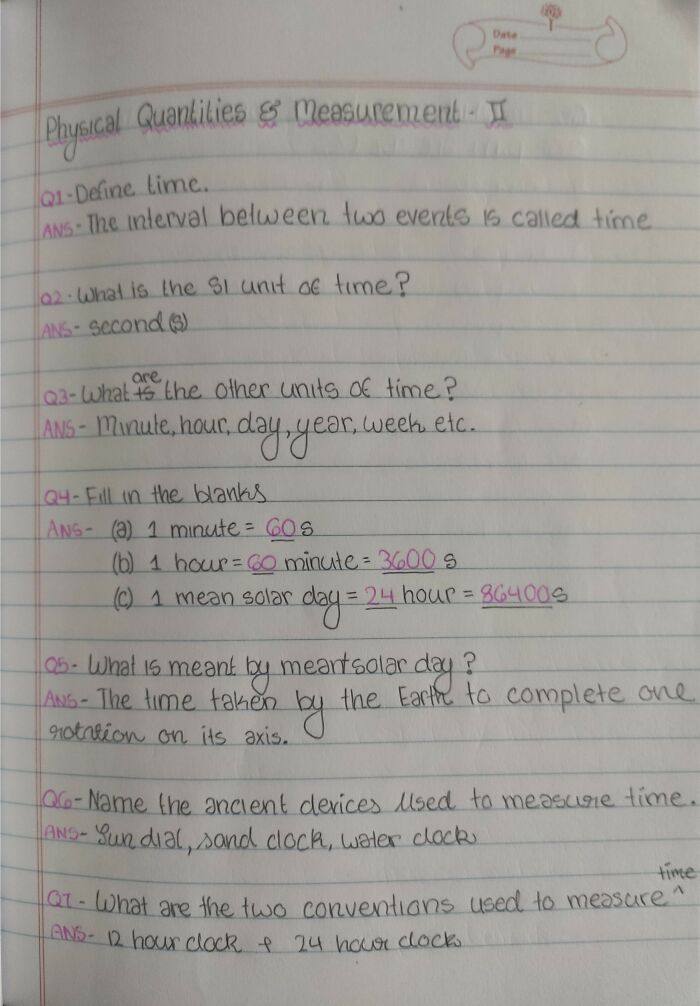 Date
Page
Physical Quantities & Measurement - II
Q1 - Define time.
ANS - The interval between two events is called time
Q2 - What is the SI unit of time?
ANS - second (s)
Q3 - What are the other units of time?
ANS - Minute, hour, day, year, week etc.
Q4 - Fill in the blanks
ANS - (a) 1 minute = 60 s
(b) 1 hour = 60 minute = 3600 s
(c) 1 mean solar day = 24 hour = 86400 s
Q5 - What is meant by mean solar day?
ANS - The time taken by the Earth to complete one
rotation on its axis.
Q6 - Name the ancient devices used to measure time.
ANS - Sun dial, sand clock, water clock
Q7 - What are the two conventions used to measure ^ time
ANS - 12 hour clock + 24 hour clock